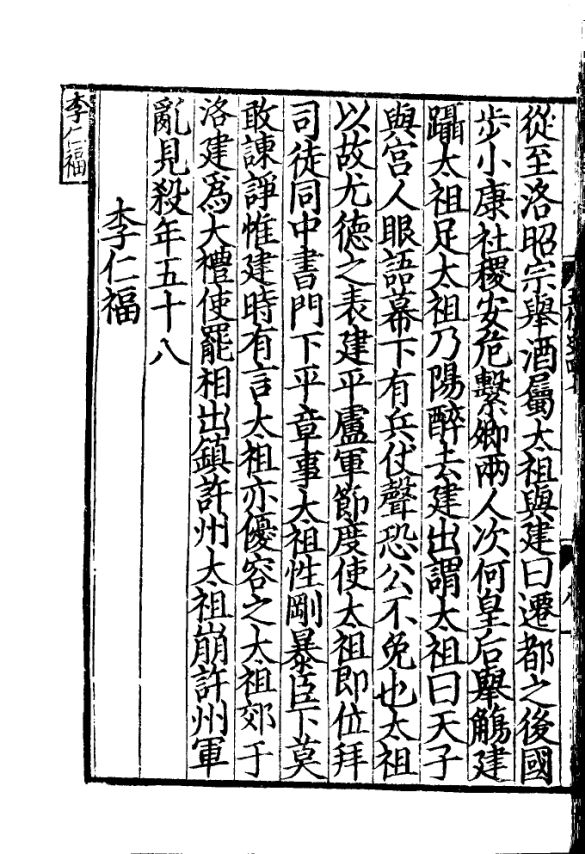 從至洛昭宗舉酒屬太祖與建曰遷都之後國
步小康社稷安危繫卿兩人次何皇后舉觴建
躡太祖足太祖乃陽醉去建出謂太祖曰天子
與宮人眼語幕下有兵仗聲恐公不免也太祖
以故尤德之表建平盧軍節度使太祖即位拜
司徒同中書門下平章事太祖性剛暴臣下莫
敢諫諍惟建時有言太祖亦優容之太祖郊于
洛建爲大禮使罷相出鎮許州太祖崩許州軍
亂見殺年五十八
李仁福
李仁福